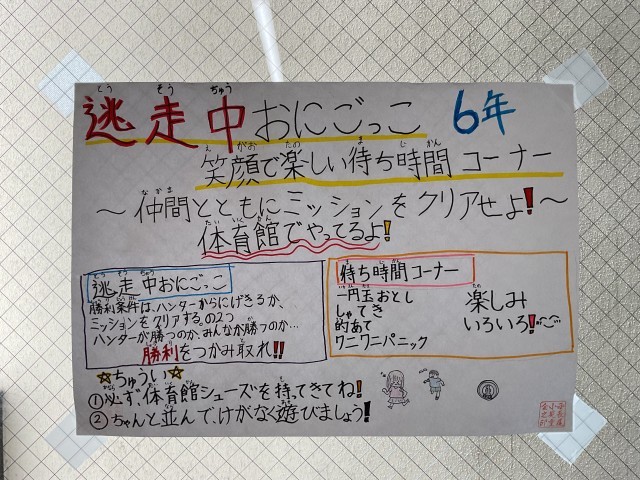 逃走中おにごっこ 6年
笑顔で楽しい待ち時間コーナー
～仲間とともにミッションをクリアせよ!～
体育館でやってるよ!
逃走中おにごっこ
勝利条件は、ハンターからにげきるか、
ミッションをクリアする。の2つ
ハンターが勝つのか。みんなが勝つのか…
勝利をつかみ取れ!!
待ち時間コーナー
一円玉おとし
しゃてき
的あて
ワニワニパニック
楽しみ
いろいろ!
☆ちゅうい☆
①必ず、体育館シューズを持ってきてね!
②ちゃんと並んで、けがなく遊びましょう!